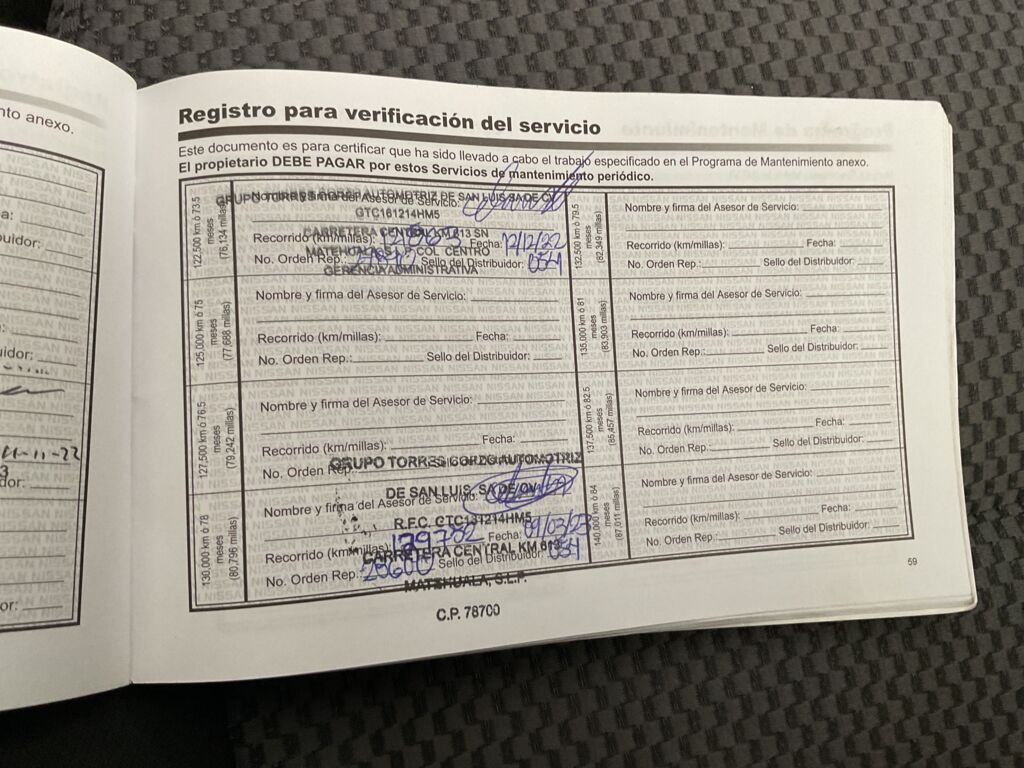 nto anexo.
Registro para verificación del servicio
Este documento es para certificar que ha sido llevado a cabo el trabajo especificado en el Programa de Mantenimiento anexo.
El propietario DEBE PAGAR por estos Servicios de mantenimiento periódico.
122,500 km ó 73.5
meses
(76,134 millas)
GRUPO TORRES CORZO AUTOMOTRIZ DE SAN LUIS SA DE CV
Nombre y firma del Asesor de Servicio:
GTC161214HM5
CARRETERA CENTRAL KM 613 SN
Recorrido (km/millas): Fecha: 12/12/22
MATEHUALA S.L.P COL CENTRO
No. Orden Rep.: Sello del Distribuidor: 054
GERENCIA ADMINISTRATIVA
125,000 km ó 75
meses
(77,688 millas)
Nombre y firma del Asesor de Servicio:
Recorrido (km/millas): Fecha:
No. Orden Rep.: Sello del Distribuidor:
127,500 km ó 76.5
meses
(79,242 millas)
Nombre y firma del Asesor de Servicio:
Recorrido (km/millas): Fecha:
No. Orden Rep.: Sello del Distribuidor:
GRUPO TORRES CORZO AUTOMOTRIZ
130,000 km ó 78
meses
(80,796 millas)
DE SAN LUIS, SA DE CV
Nombre y firma del Asesor de Servicio:
R.F.C. GTC161214HM5
Recorrido (km/millas): 139732 Fecha: 09/03/23
CARRETERA CENTRAL KM 613
No. Orden Rep.: 28600 Sello del Distribuidor: 054
MATEHUALA, S.L.P.
C.P. 78700
132,500 km ó 79.5
meses
(82,349 millas)
Nombre y firma del Asesor de Servicio:
Recorrido (km/millas): Fecha:
No. Orden Rep.: Sello del Distribuidor:
135,000 km ó 81
meses
(83,903 millas)
Nombre y firma del Asesor de Servicio:
Recorrido (km/millas): Fecha:
No. Orden Rep.: Sello del Distribuidor:
137,500 km ó 82.5
meses
(85,457 millas)
Nombre y firma del Asesor de Servicio:
Recorrido (km/millas): Fecha:
No. Orden Rep.: Sello del Distribuidor:
140,000 km ó 84
meses
(87,011 millas)
Nombre y firma del Asesor de Servicio:
Recorrido (km/millas): Fecha:
No. Orden Rep.: Sello del Distribuidor:
59